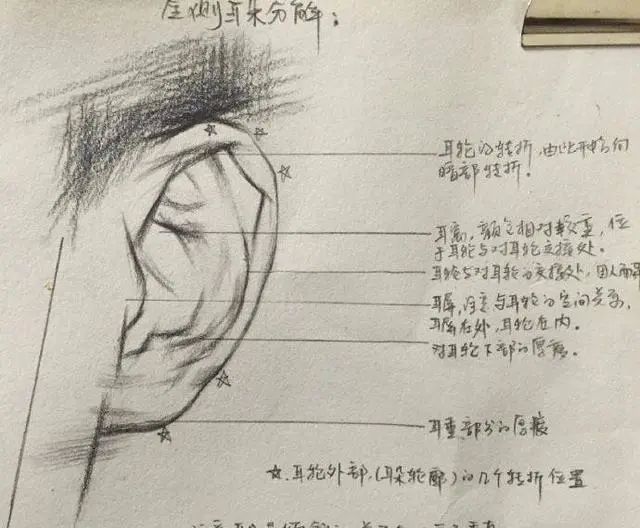 侧耳朵分解：
耳轮的转折，由此开始向
暗部转折。
耳窝，颜色相对较重，位
于耳轮与对耳轮交接处。
耳轮与对耳轮的交接处，因人而异
耳屏，注意与耳轮的空间关系，
耳屏在外，耳轮在内。
对耳轮下部的厚度。
耳垂部分的厚度
☆.耳轮外部，(耳朵轮廓)的几个转折位置